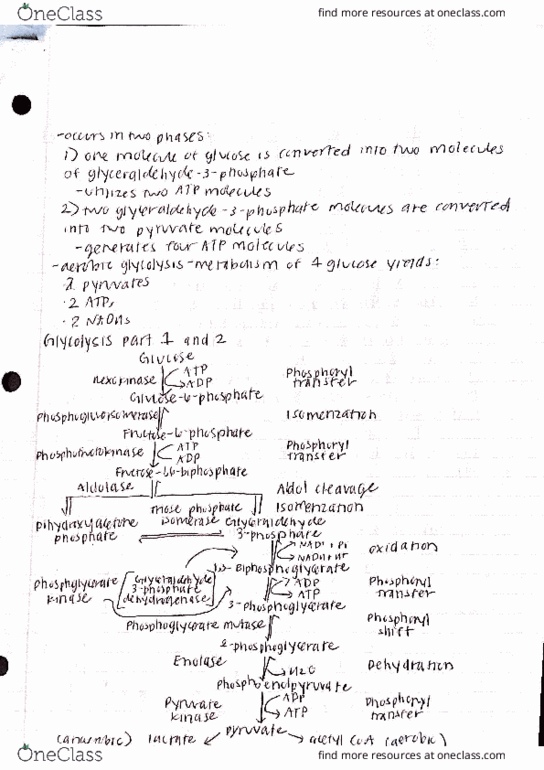 OneClass find more resources at oneclass.com
-occurs in two phases:
1) one molecule of glucose is converted into two molecules
of glyceraldehyde-3-phosphate
-utilizes two ATP molecules
2) two glyceraldehyde-3-phosphate molecules are converted
into two pyruvate molecules
-generates four ATP molecules
-aerobic glycolysis-metabolism of 1 glucose yields:
·2 pyruvates
·2 ATPs
·2 NADHs
Glycolysis part 1 and 2
Glucose
hexokinase ATP ADP Phosphoryl transfer
Glucose-6-phosphate
Phosphoglucoisomerase Isomerization
Fructose-6-phosphate
Phosphofructokinase ATP ADP Phosphoryl transfer
Fructose-1,6-biphosphate
Aldolase Aldol cleavage
triose phosphate isomerase Isomerization
Dihydroxyacetone phosphate Glyceraldehyde 3-phosphate
NAD+ + Pi NADH + H+ oxidation
Glyceraldehyde 3-phosphate dehydrogenase
1,3-Biphosphoglycerate
Phosphglycerate kinase ADP ATP Phosphoryl transfer
3-phosphoglycerate
Phosphoglycerate mutase Phosphoryl shift
2-phosphoglycerate
Enolase H2O Dehydration
Phosphoenolpyruvate
Pyruvate kinase ADP ATP Phosphoryl transfer
(anaerobic) lactate pyruvate acetyl CoA (aerobic)
OneClass find more resources at oneclass.com